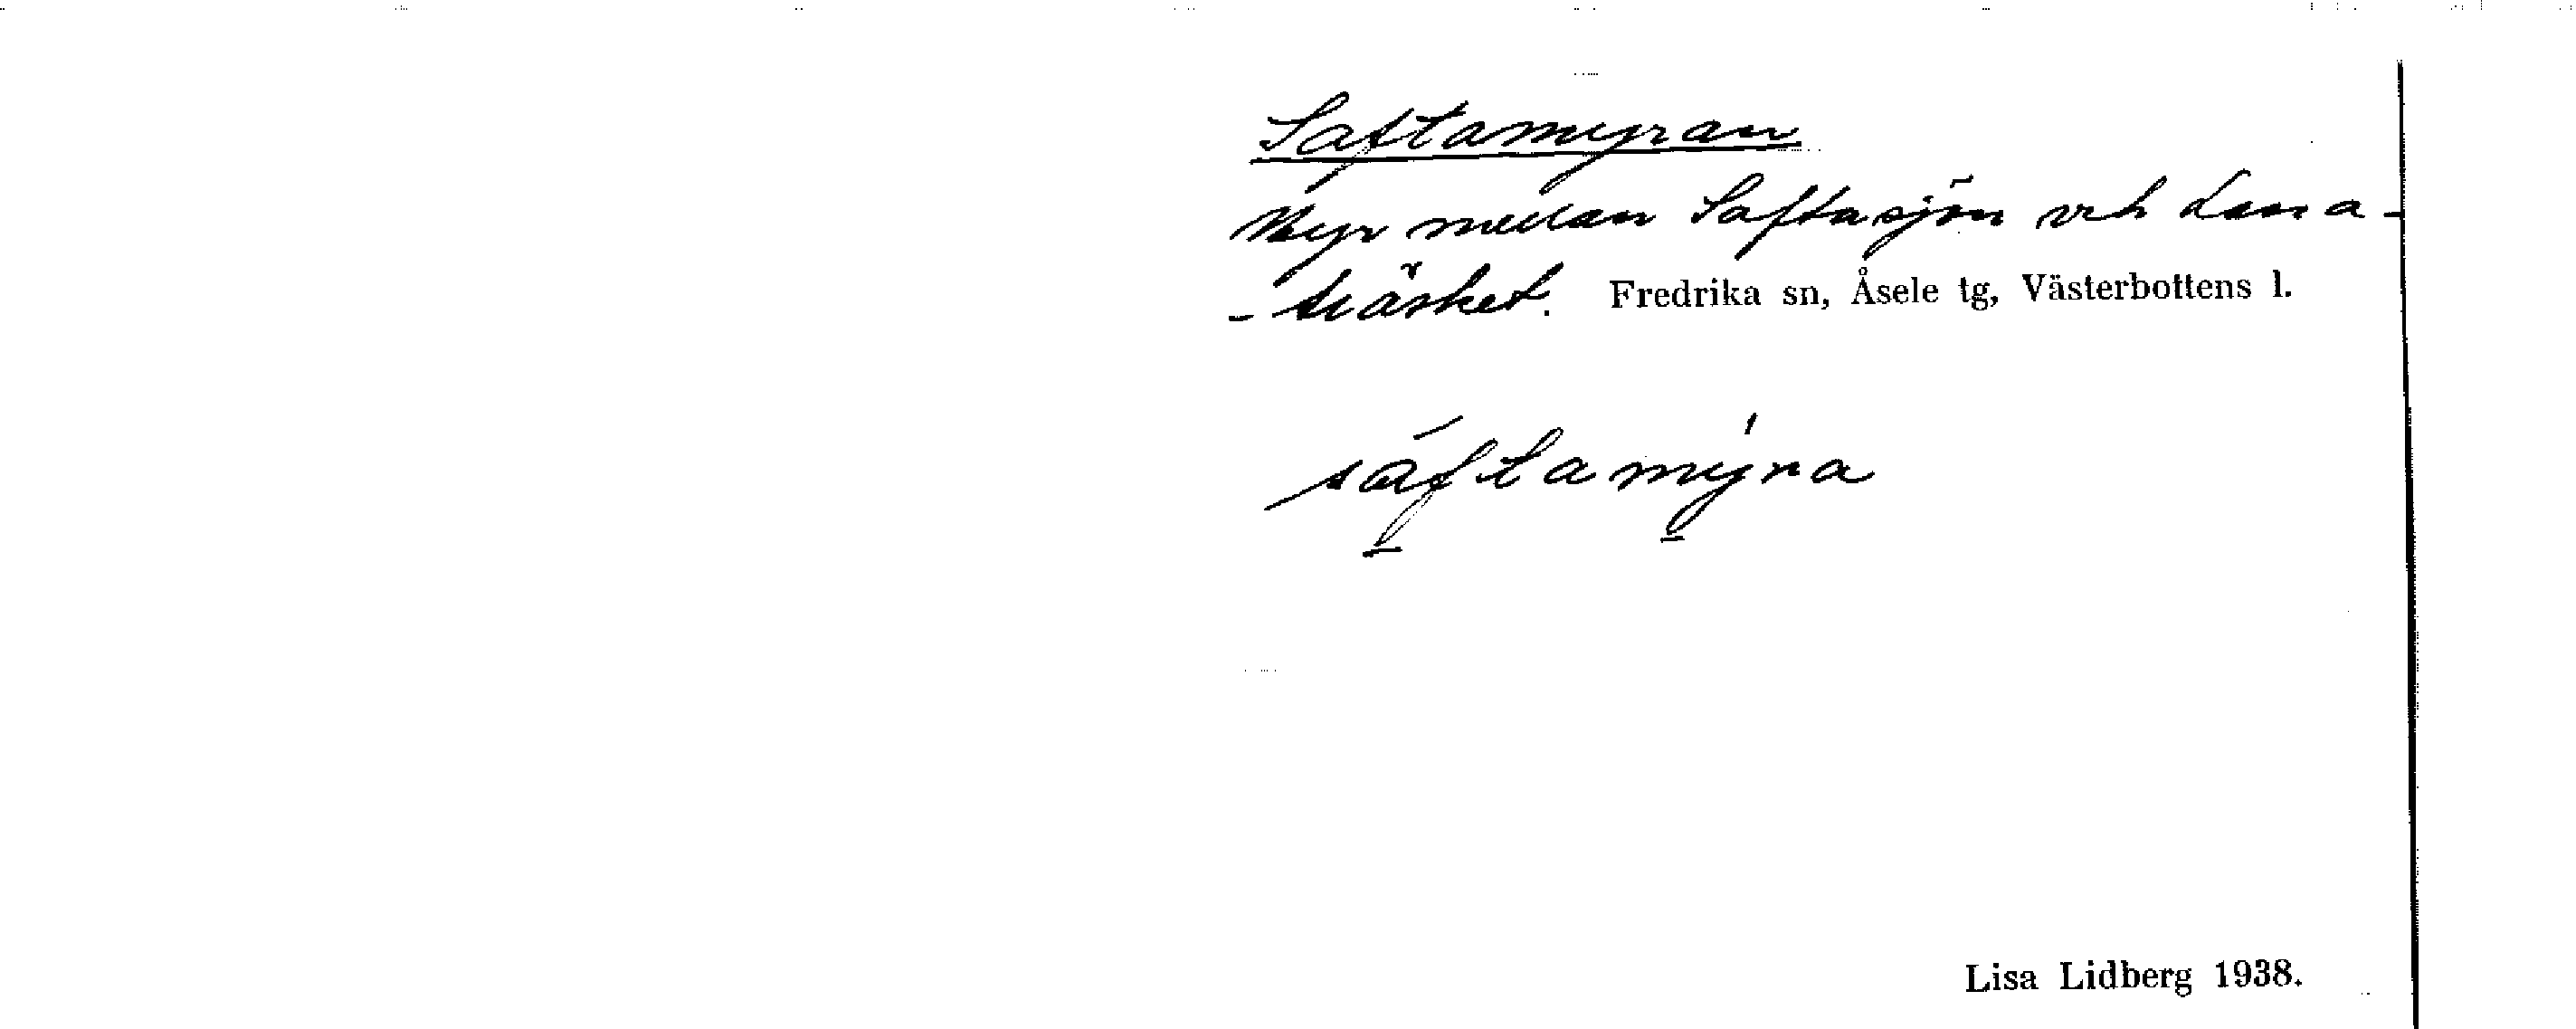 Saftamyran
Myr mellan Saftasjön och Lana-
-träsket. Fredrika sn, Åsele tg, Västerbottens l.
sáftamýra
Lisa Lidberg 1938.